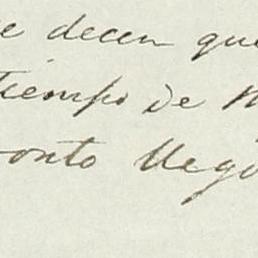 e decen que
tiempo de
onto llegó